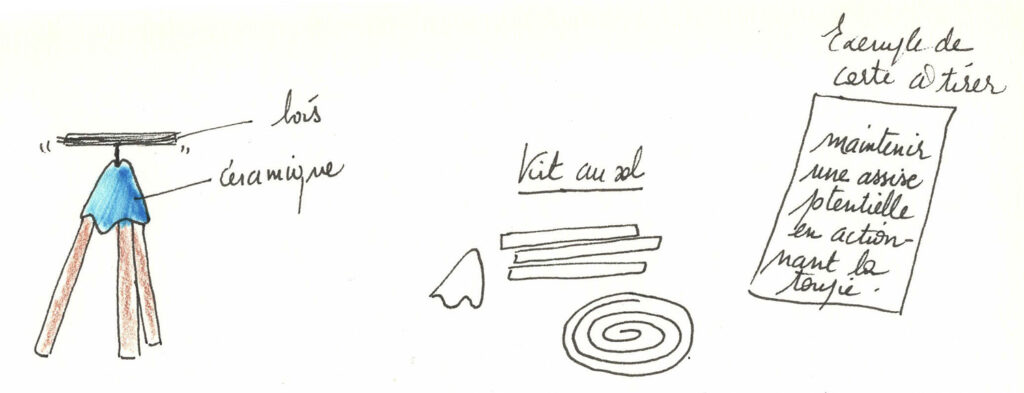 bois
céramique
Kit au sol
Exemple de
carte à tirer
maintenir
une assise
potentielle
en action-
nant la
toupie.